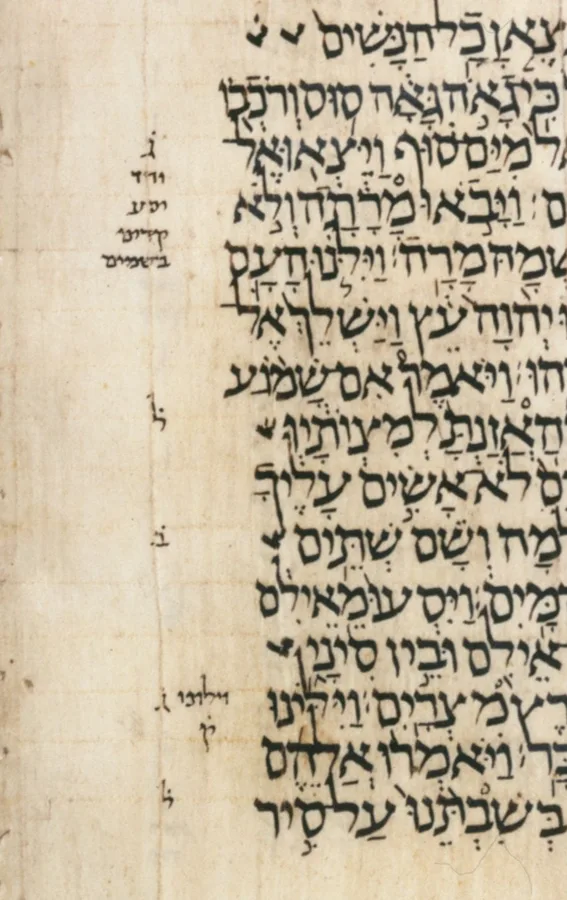 צְאןָ כָל הַנָּשִׁים
כִּי גָאֹה גָּאָה סוּס וְרֹכְבוֹ
מִיַּם סוּף וַיֵּצְאוּ אֶל
וַיָּבֹאוּ מָרָתָה וְלֹא
שְׁמָהּ מָרָה׃ וַיִּלֹּנוּ הָעָם
יְהוָה עֵץ וַיַּשְׁלֵךְ אֶל
וַיֹּאמֶר אִם שָׁמוֹעַ
הַאֲזַנְתָּ לְמִצְוֹתָיו
לֹא אָשִׂים עָלֶיךָ
וְשָׁם שְׁתֵּים
הַמָּיִם׃ וַיִּסְעוּ מֵאֵילִם
אֵילִם וּבֵין סִינָי
מִצְרָיִם׃ וַיִּלֹּינוּ
וַיֹּאמְרוּ אֲלֵהֶם
בְּשִׁבְתֵּנוּ עַל סִיר
ג
יסע
בשמים
ל
ב
וילונו
ק
ל